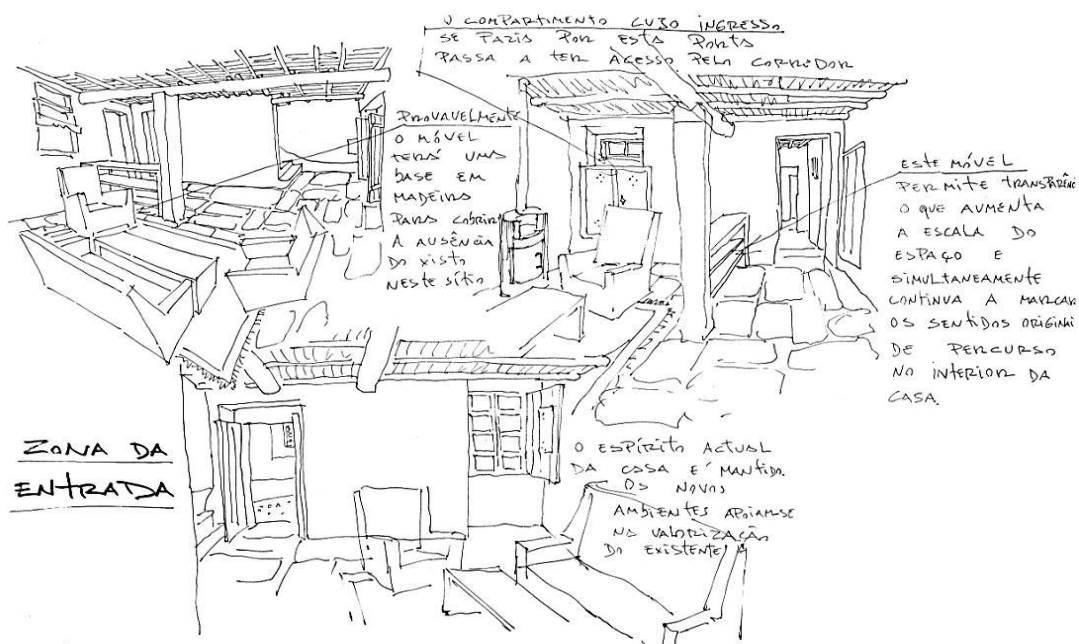 O COMPARTIMENTO CUJO INGRESSO
SE FAZIA POR ESTA PORTA
PASSA A TER ACESSO PELO CORREDOR
PROVAVELMENTE
O MÓVEL
TERÁ UMA
BASE EM
MADEIRA
PARA COBRIR
A AUSÊNCIA
DO XISTO
NESTE SÍTIO
ESTE MÓVEL
PERMITE TRANSPARÊNC
O QUE AUMENTA
A ESCALA DO
ESPAÇO E
SIMULTANEAMENTE
CONTINUA A MARCAR
OS SENTIDOS ORIGINAI
DE PERCURSO
NO INTERIOR DA
CASA.
ZONA DA
ENTRADA
O ESPÍRITO ACTUAL
DA CASA É MANTIDO.
OS NOVOS
AMBIENTES APOIAM-SE
NA VALORIZAÇÃO
DO EXISTENTE